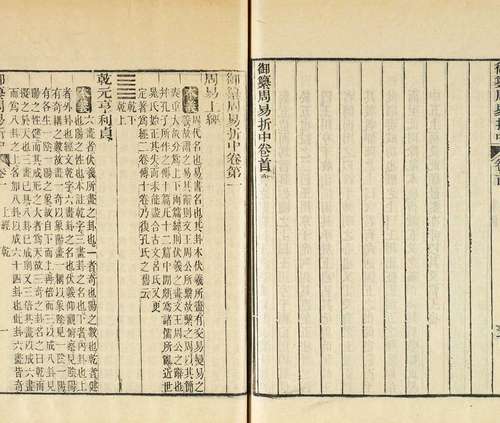 御纂周易折中 卷首
御纂周易折中卷首
御纂周易折中卷第一
周易上經
本義 周代名也易書名也其卦本伏羲所畫有交易變易之
義故謂之易其辭則文王周公所繫故繫之周以其簡
袠重大故分為上下兩篇經則伏羲之畫文王周公之辭也
并孔子所作之傳十篇凡十二篇中間頗為諸儒所亂近世
晁氏始正其失而未能盡合古文呂氏又更
定著為經二卷傳十卷乃復孔氏之舊云
䷀ 乾下
乾上
乾元亨利貞
本義 六畫者伏羲所畫之卦也一者奇也陽之數也乾者健
也陽之性也本註乾字三畫卦之名也下者內卦也上
者外卦也經文乾字六畫卦之名也伏羲仰觀俯察見陰陽
有奇耦之數故畫一奇以象陽畫一耦以象陰見一陰一陽
有各生一陰一陽之象故自下而上再倍而三以成八卦見
陽之性健而其成形之大者為天故三奇之卦名之曰乾而
擬之於天也三畫已具八卦已成則又三倍其畫以成六畫
而於八卦之上各加八卦以成六十四卦也此卦六畫皆奇
御纂周易折中 卷一 上經 乾 一